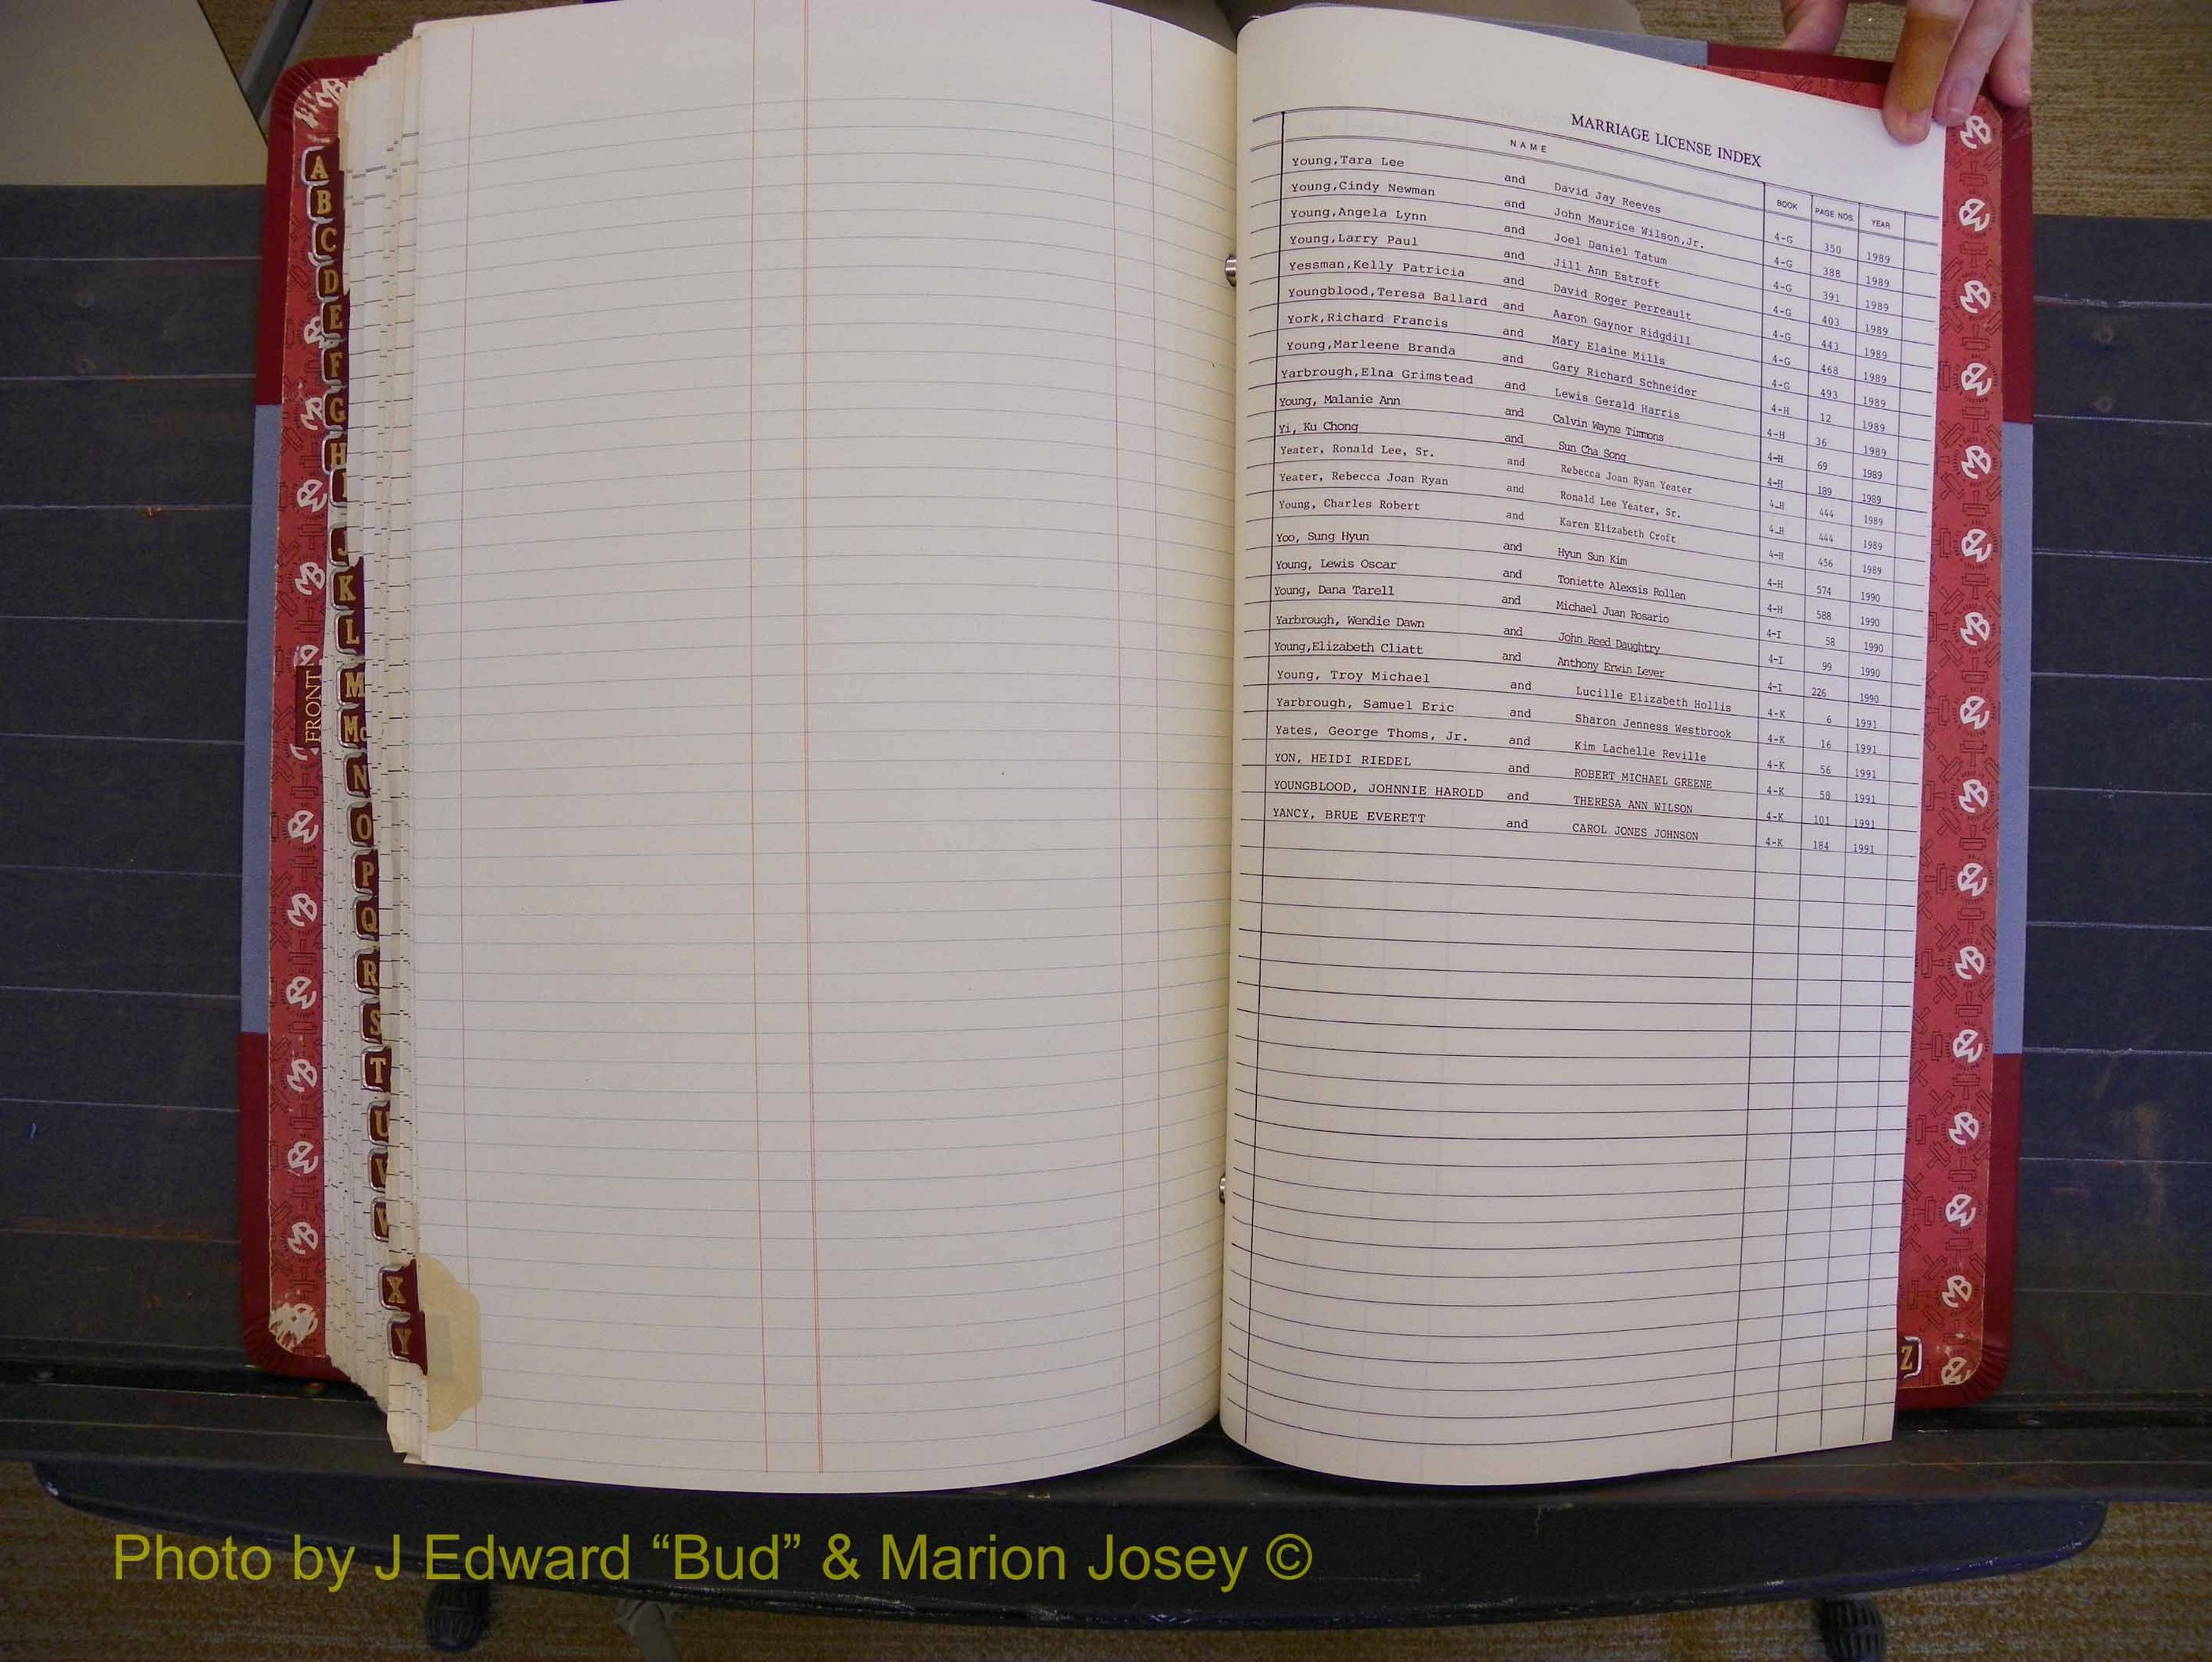 MARRIAGE LICENSE INDEX
NAME BOOK PAGE NOS. YEAR
Young,Tara Lee and David Jay Reeves 4-G 350 1989
Young,Cindy Newman and John Maurice Wilson,Jr. 4-G 388 1989
Young,Angela Lynn and Joel Daniel Tatum 4-G 391 1989
Young,Larry Paul and Jill Ann Estroft 4-G 403 1989
Yessman,Kelly Patricia and David Roger Perreault 4-G 443 1989
Youngblood,Teresa Ballard and Aaron Gaynor Ridgdill 4-G 468 1989
York,Richard Francis and Mary Elaine Mills 4-G 493 1989
Young,Marleene Branda and Gary Richard Schneider 4-H 12 1989
Yarbrough,Elna Grimstead and Lewis Gerald Harris 4-H 36 1989
Young, Malanie Ann and Calvin Wayne Timmons 4-H 69 1989
Yi, Ku Chong and Sun Cha Song 4-H 189 1989
Yeater, Ronald Lee, Sr. and Rebecca Joan Ryan Yeater 4-H 444 1989
Yeater, Rebecca Joan Ryan and Ronald Lee Yeater, Sr. 4-H 444 1989
Young, Charles Robert and Karen Elizabeth Croft 4-H 456 1989
Yoo, Sung Hyun and Hyun Sun Kim 4-H 574 1990
Young, Lewis Oscar and Toniette Alexsis Rollen 4-H 588 1990
Young, Dana Tarell and Michael Juan Rosario 4-I 58 1990
Yarbrough, Wendie Dawn and John Reed Daughtry 4-I 99 1990
Young,Elizabeth Cliatt and Anthony Erwin Lever 4-I 226 1990
Young, Troy Michael and Lucille Elizabeth Hollis 4-K 6 1991
Yarbrough, Samuel Eric and Sharon Jenness Westbrook 4-K 16 1991
Yates, George Thoms, Jr. and Kim Lachelle Reville 4-K 56 1991
YON, HEIDI RIEDEL and ROBERT MICHAEL GREENE 4-K 58 1991
YOUNGBLOOD, JOHNNIE HAROLD and THERESA ANN WILSON 4-K 101 1991
YANCY, BRUE EVERETT and CAROL JONES JOHNSON 4-K 184 1991
A
B
C
D
E
F
G
H
I
J
K
L
M
Mc
N
O
P
Q
R
S
T
U
V
W
X
Y
Z
FRONT
Photo by J Edward “Bud” & Marion Josey ©